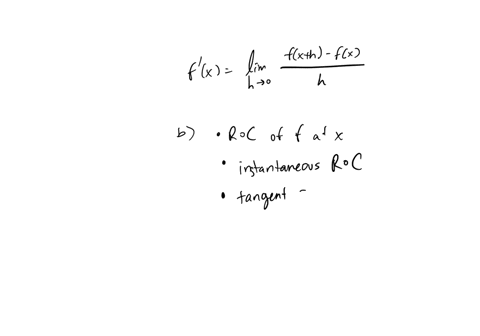 f'(x) = lim h→0 f(x+h) - f(x) / h
b) • RoC of f at x
• instantaneous RoC
• tangent -